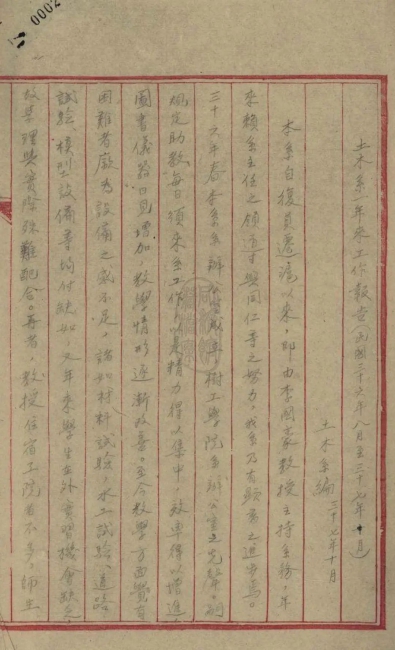 0002
土木系一年來工作報告(民國三十六年八月至三十七年十月)
土木系編 三十七年十月
本系自復員遷滬以來,即由李國豪教授主持系務,年
來賴系主任之領導與同仁等之努力,我系乃有顯著之進步焉。
三十六年春本系系辦公室成立,樹工學院系辦公室之先聲。嗣
規定助教每日須來室工作,以是精力得以集中,效率得以增進
圖書儀器日見增加,教學情形逐漸改善。至今教學方面實有
困難者厥為設備之感不足,諸如材料試驗、水工試驗、道路
試驗、模型設備等均付缺如,又年來學生在外實習機會缺乏
故其理與實際殊難配合。再者,教授住宿工院者不多,師生